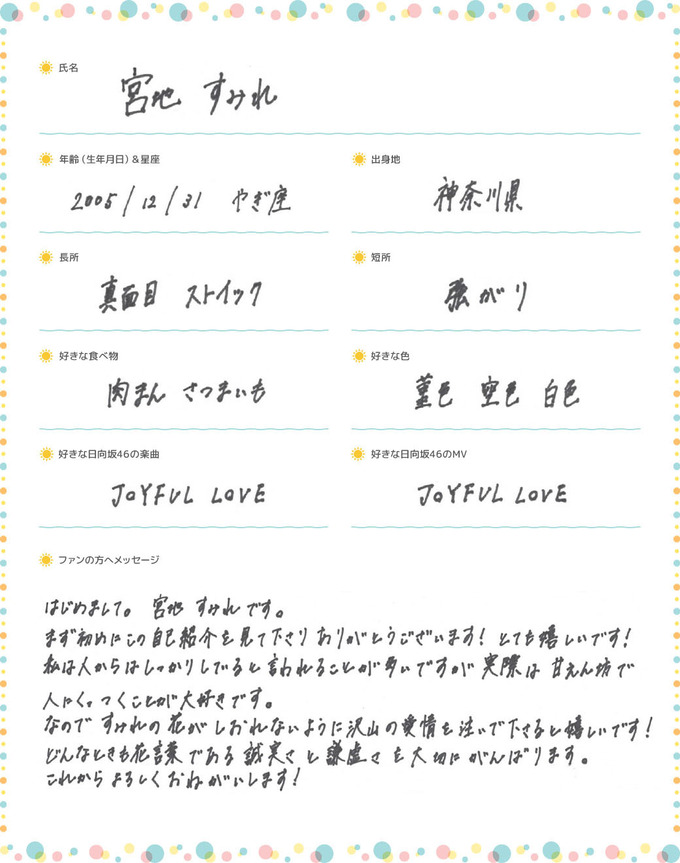 氏名
宮地 すみれ
年齢(生年月日)&星座
出身地
2005/12/31 やぎ座
神奈川県
長所
短所
真面目 ストイック
強がり
好きな食べ物
好きな色
肉まん さつまいも
菫色 空色 白色
好きな日向坂46の楽曲
好きな日向坂46のMV
JOYFUL LOVE
JOYFUL LOVE
ファンの方へメッセージ
はじめまして。 宮地 すみれです。
まず初めにこの自己紹介を見て下さりありがとうございます! とても嬉しいです!
私は人からはしっかりしていると言われることが多いですが実際は甘えん坊で
人にくっつくことが大好きです。
なのですみれの花がしおれないように沢山の愛情を注いで下さると嬉しいです!
どんなときも花言葉である誠実さと謙虚さを大切にがんばります。
これからよろしくおねがいします!